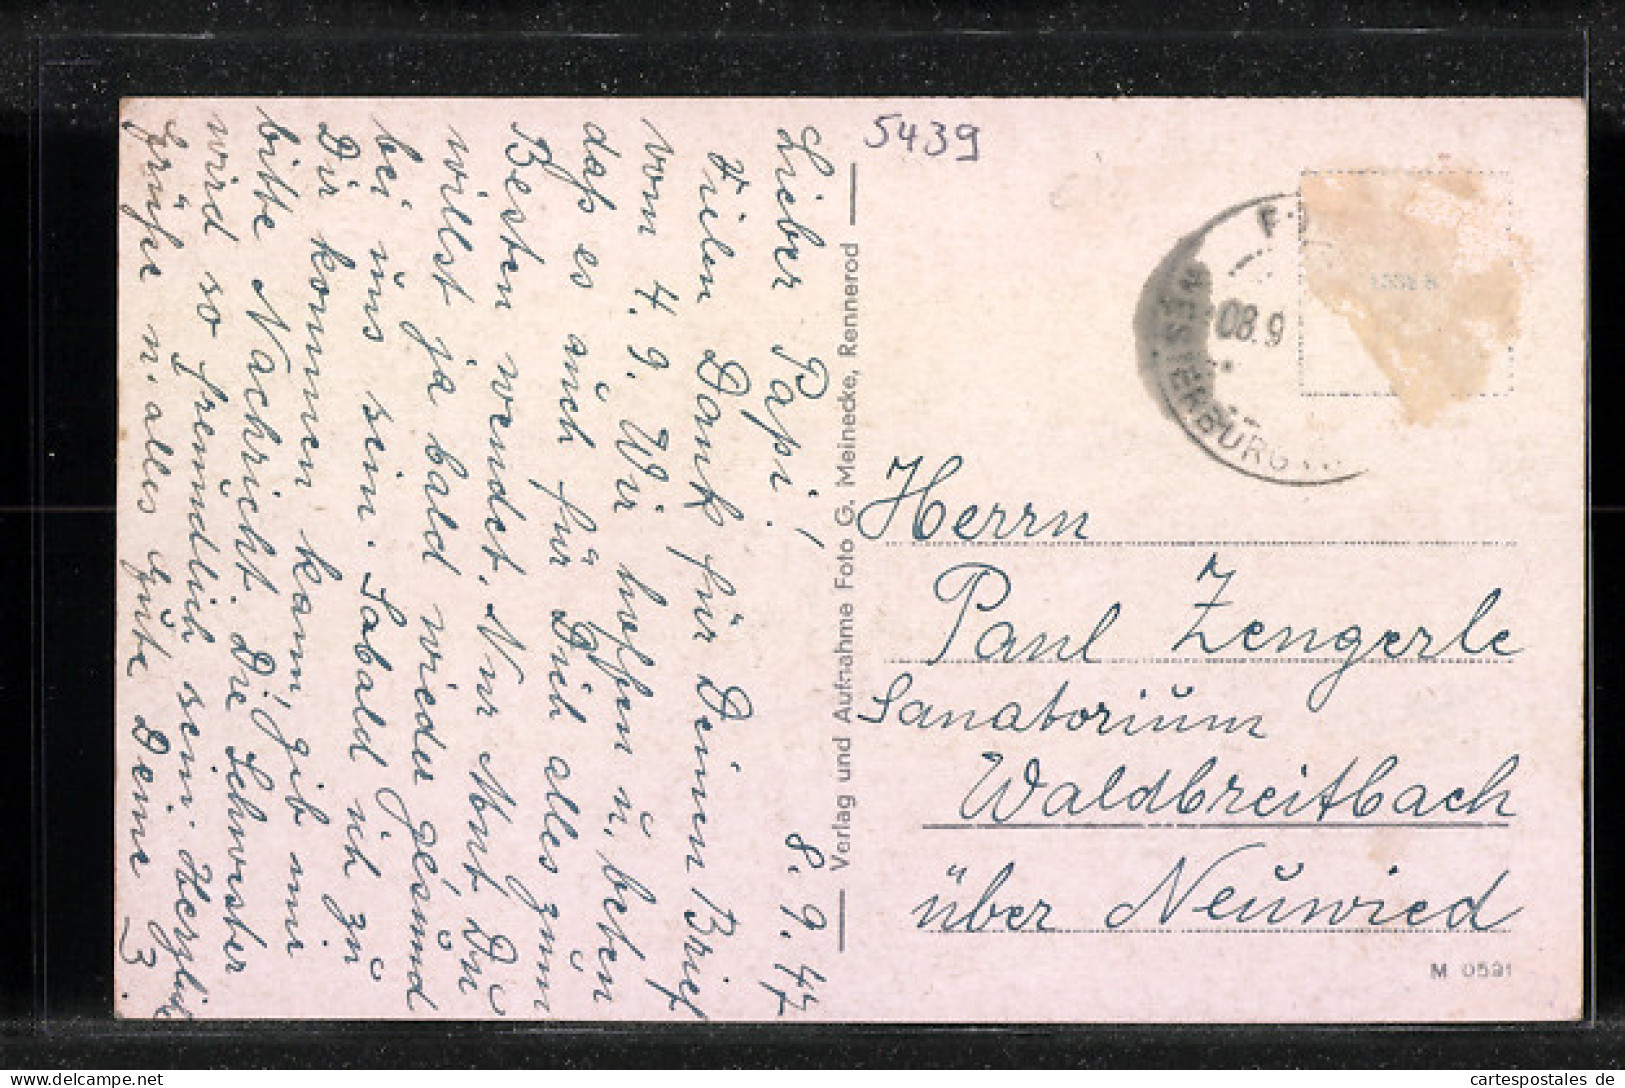 8. 9. 47
Lieber Papi!
Vielen Dank für Deinen Brief
vom 4. 9. Wir hoffen u. beten
daß es auch für Dich alles zum
Besten wendet. Nur Mont Du
willst ja bald wieder gesund
bei uns sein. Sobald ich zu
Dir kommen kann, gib mir
bitte Nachricht. Die Schwester
wird so freundlich sein. Herzliche
Grüße u. alles Gute Deine 3.
Verlag und Aufnahme Foto G. Meinecke, Rennerod
5439
WESTERBURG
08.9
Herrn
Paul Zengerle
Sanatorium
Waldbreitbach
über Neuwied
M 0591
cartespostales de